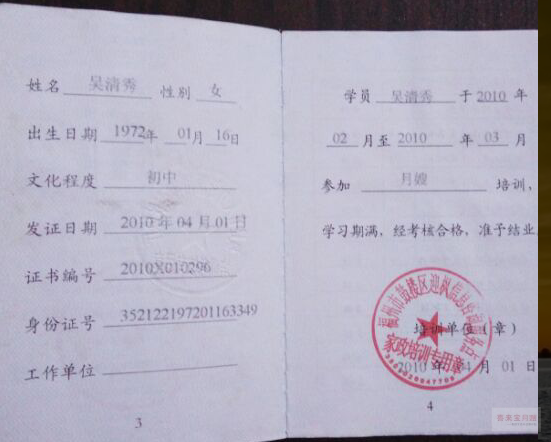 姓名 吴清秀 性别 女
出生日期 1972年 01月 16日
文化程度 初中
发证日期 2010年04月01日
证书编号 2010X010296
身份证号 352122197201163349
工作单位
3
学员 吴清秀 于2010年
02月至2010年03月
参加 月嫂 培训，
学习期满，经考核合格，准予结业
福州市鼓楼区迎
家政培训专用章
培训单位(章)
2010年04月01日
4